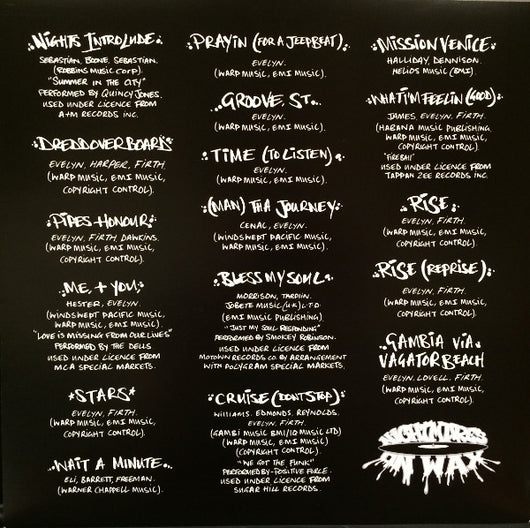 NIGHTS INTROLUDE
SEBASTIAN, BOONE, SEBASTIAN.
(ROBBINS MUSIC CORP)
"SUMMER IN THE CITY"
PERFORMED BY QUINCY JONES.
USED UNDER LICENCE FROM
A+M RECORDS INC.
DREDDOVERBOARD
EVELYN, HARPER, FIRTH.
(WARP MUSIC, EMI MUSIC,
COPYRIGHT CONTROL).
PIPES HONOUR
EVELYN. FIRTH DAWKINS.
(WARP MUSIC, EMI MUSIC,
COPYRIGHT CONTROL).
ME + YOU
HESTER, EVELYN
(WINDSWEPT PACIFIC MUSIC,
WARP MUSIC, EMI MUSIC).
"LOVE IS MISSING FROM OUR LIVES"
PERFORMED BY THE DELLS
USED UNDER LICENCE FROM
MCA SPECIAL MARKETS.
*STARS*
EVELYN, FIRTH.
(WARP MUSIC, EMI MUSIC,
COPYRIGHT CONTROL).
WAIT A MINUTE
ELI, BARRETT, FREEMAN.
(WARNER CHAPPELL MUSIC).
PRAYIN (FOR A JEEPBEAT)
EVELYN.
(WARP MUSIC, EMI MUSIC).
GROOVE, ST.
EVELYN.
(WARP MUSIC, EMI MUSIC).
TIME (TO LISTEN)
EVELYN.
(WARP MUSIC, EMI MUSIC).
(MAN) THA JOURNEY
CENAC, EVELYN.
(WINDSWEPT PACIFIC MUSIC,
WARP MUSIC, EMI MUSIC).
BLESS MY SOUL
MORRISON, TARPLIN.
JOBETE MUSIC (U.K) LTD
(EMI MUSIC PUBLISHING).
"JUST MY SOUL RESPONDING"
PERFORMED BY SMOKEY ROBINSON.
USED UNDER LICENCE FROM
MOTOWN RECORDS CO. BY ARRANGEMENT
WITH POLYGRAM SPECIAL MARKETS.
CRUISE (DONT STOP)
WILLIAMS. EDMONDS. REYNOLDS.
EVELYN, FIRTH.
(GAMBI MUSIC BMI/IQ MUSIC LTD)
(WARP MUSIC, EMI MUSIC)
(COPYRIGHT CONTROL).
"WE GOT THE FUNK"
PERFORMED BY-POSITIVE FORCE.
USED UNDER LICENCE FROM
SUGAR HILL RECORDS.
MISSION VENICE
HALLIDAY, DENNISON.
HELIOS MUSIC (BMI)
WHAT I'M FEELIN (GOOD)
JAMES, EVELYN, FIRTH.
(HABANA MUSIC PUBLISHING.
WARP MUSIC, EMI MUSIC,
COPYRIGHT CONTROL)
USED UNDER LICENCE FROM
TAPPAN ZEE RECORDS INC.
RISE
EVELYN. FIRTH.
(WARP MUSIC, EMI MUSIC,
COPYRIGHT CONTROL).
RISE (REPRISE)
EVELYN, FIRTH.
(WARP MUSIC, EMI MUSIC,
COPYRIGHT CONTROL).
GAMBIA VIA
VAGATOR BEACH
EVELYN, LOVELL. FIRTH.
(WARP MUSIC, EMI MUSIC,
COPYRIGHT CONTROL).
NIGHTMARES
ON WAX